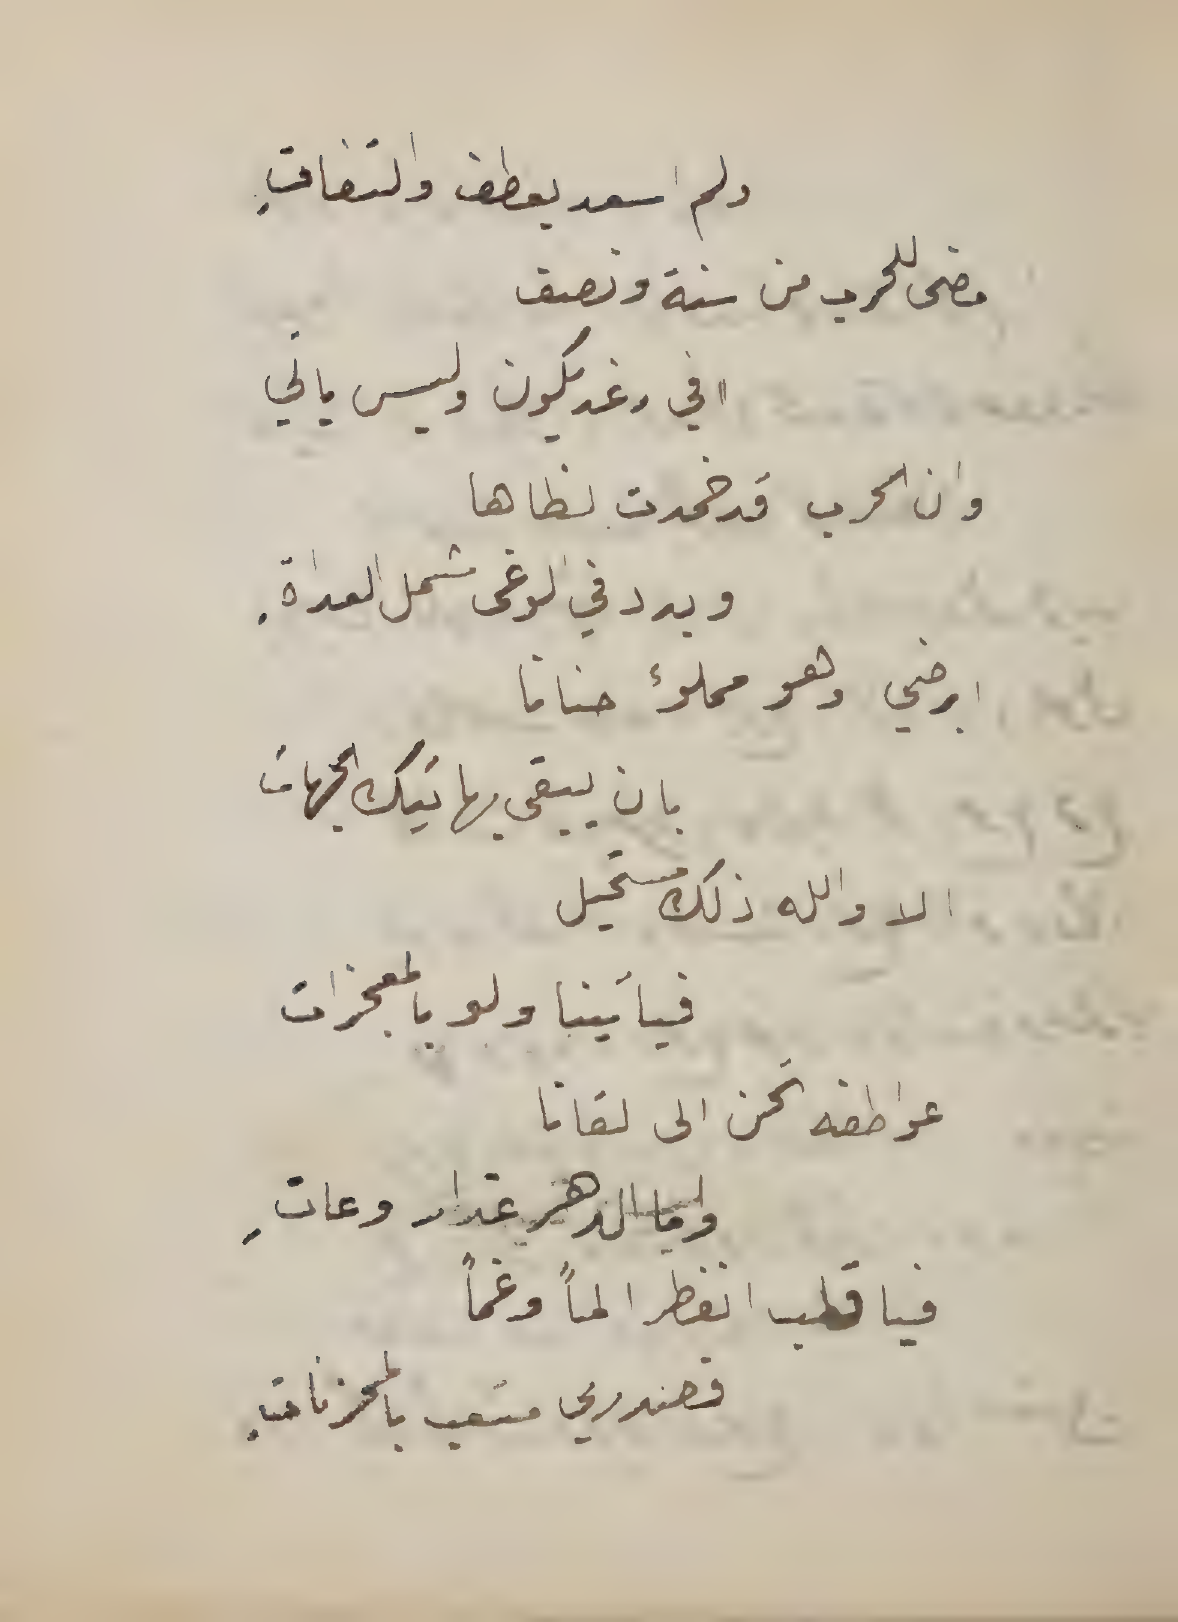 ولم اسعد يعطف والتفات
مضى للحرب من سنة ونصف
افي رغد يكون وليس ياتي
وان الحرب قد خمدت لظاها
وبدد في الوغى شمل العداة
ايرضي وهو مملوء حنانا
بان يبقى بهاتيك الجهات
الا والله ذلك مستحيل
فياتينا ولو بالمعجزات
عواطفه تحن الى لقانا
الدهر غدار وعات
فيا قلب انفطر الماً وغماً
متعب بالمحزنات